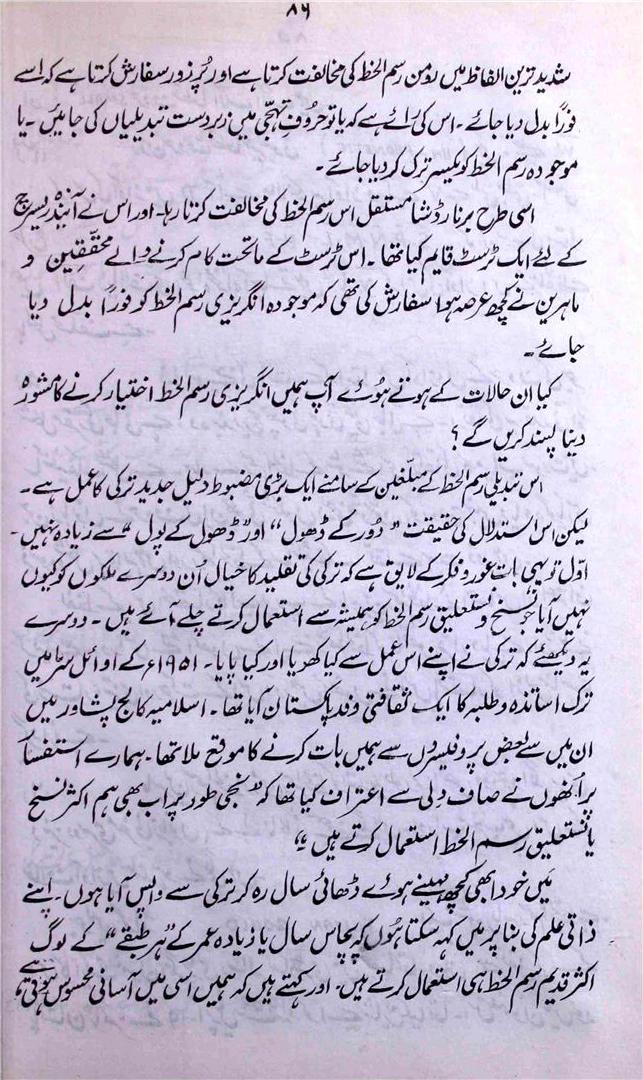 ۸۶
شدید ترین الفاظ میں رومن رسم الخط کی مخالفت کرتا ہے اور پُر زور سفارش کرتا ہے کہ اسے
فوراً بدل دیا جائے۔ اس کی رائے ہے کہ یا تو حروفِ تہجّی میں زبردست تبدیلیاں کی جائیں۔ یا
موجودہ رسم الخط کو یکسر ترک کر دیا جائے۔
اسی طرح برنارڈ شا مستقل اس رسم الخط کی مخالفت کرتا رہا۔ اور اس نے آیندہ ریسرچ
کے لئے ایک ٹرسٹ قایم کیا تھا۔ اس ٹرسٹ کے ماتحت کام کرنے والے محقّقین و
ماہرین نے کچھ عرصہ ہوا سفارش کی تھی کہ موجودہ انگریزی رسم الخط کو فوراً بدل دیا
جائے۔
کیا ان حالات کے ہوتے ہوئے آپ ہمیں انگریزی رسم الخط اختیار کرنے کا مشورہ
دینا پسند کریں گے؟
اس تبدیلیِ رسم الخط کے مبلّغین کے سامنے ایک بڑی مضبوط دلیل جدید ترکی کا عمل ہے۔
لیکن اس استدلال کی حقیقت ”دُور کے ڈھول“ اور ”ڈھول کے پول“ سے زیادہ نہیں۔
اوّل تو یہی بات غور و فکر کے لایق ہے کہ ترکی کی تقلید کا خیال اُن دوسرے ملکوں کو کیوں
نہیں آیا جو نسخ و نستعلیق رسم الخط کو ہمیشہ سے استعمال کرتے چلے آئے ہیں۔ دوسرے
یہ دیکھئے کہ ترکی نے اپنے اس عمل سے کیا کھویا اور کیا پایا۔ ۱۹۵۱ء کے اوائلِ سرما میں
ترک اساتذہ و طلبہ کا ایک ثقافتی وفد پاکستان آیا تھا۔ اسلامیہ کالج پشاور میں
ان میں سے بعض پروفیسروں سے ہمیں بات کرنے کا موقع ملا تھا۔ ہمارے استفسار
پر اُنھوں نے صاف دِلی سے اعتراف کیا تھا کہ ”نجی طور پر اب بھی ہم اکثر نسخ
یا نستعلیق رسم الخط استعمال کرتے ہیں“
میں خود ابھی کچھ مہینے ہوئے ڈھائی سال رہ کر ترکی سے واپس آیا ہوں۔ اپنے
ذاتی علم کی بنا پر میں کہہ سکتا ہوں کہ پچاس سال یا زیادہ عمر کے ”ہر طبقے“ کے لوگ
اکثر قدیم رسم الخط ہی استعمال کرتے ہیں۔ اور کہتے ہیں کہ ہمیں اسی میں آسانی محسوس ہوتی ہے،